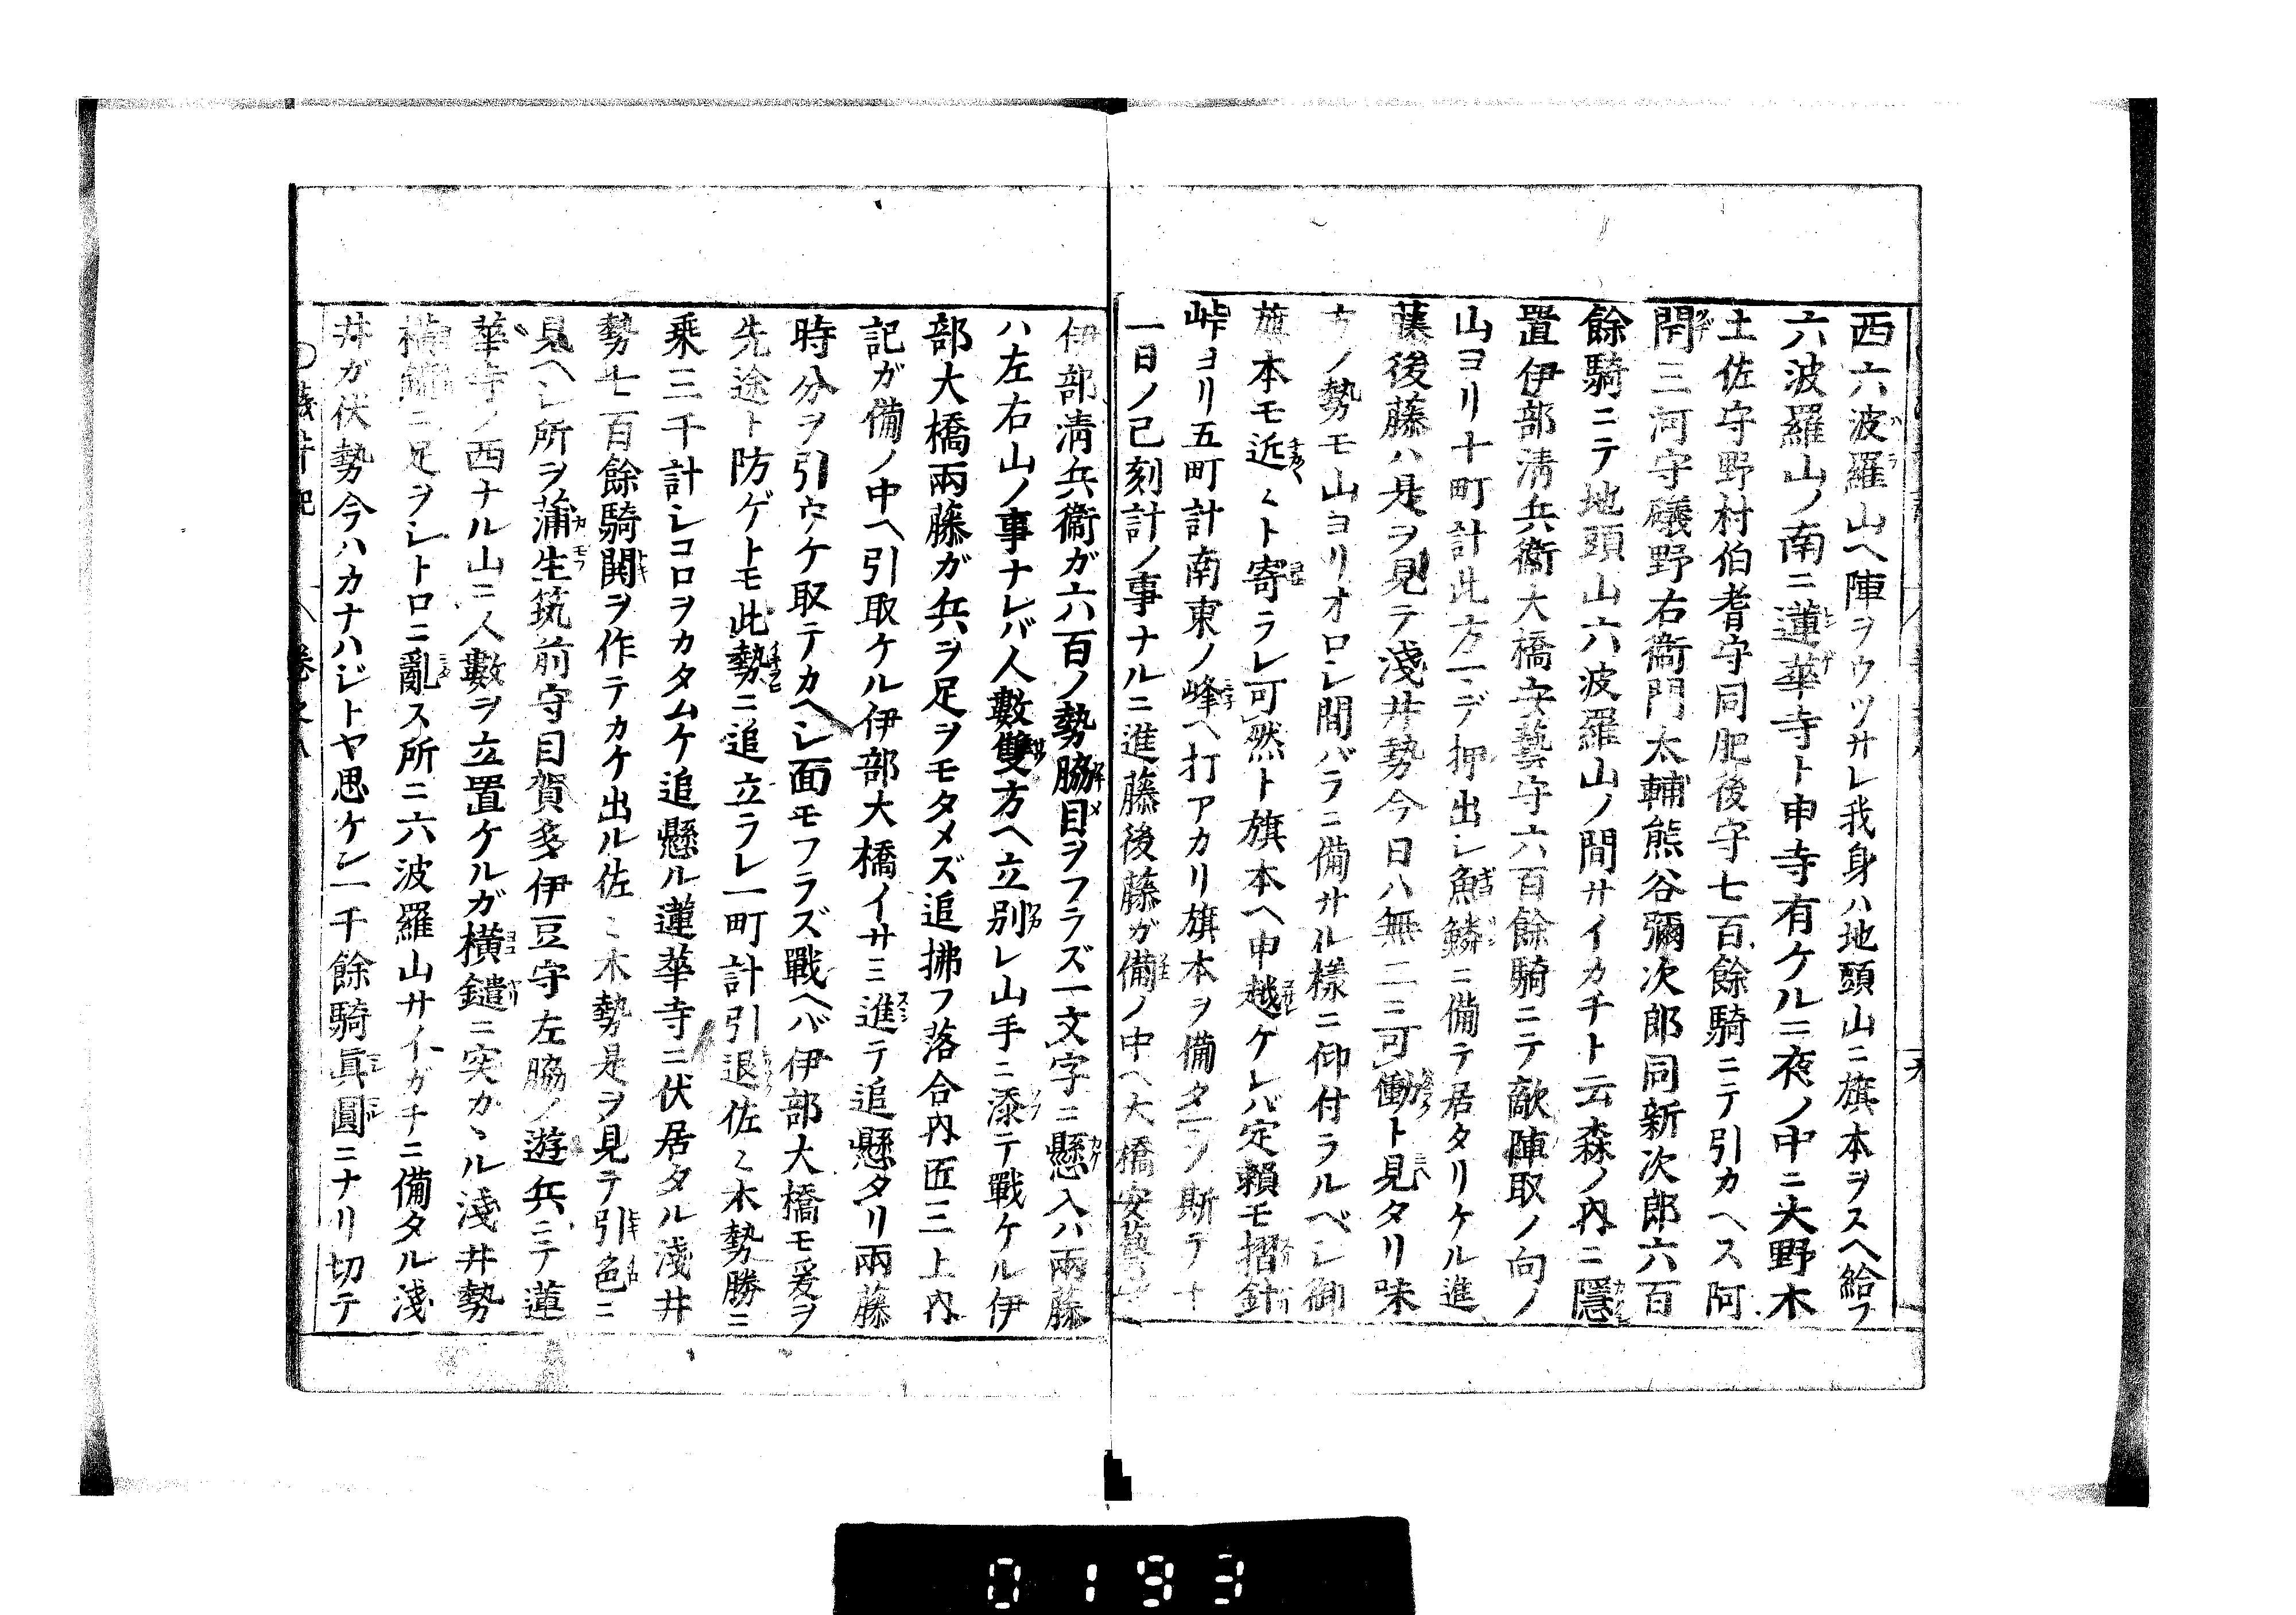 西六波羅山ヘ陣ヲウツサレ我身ハ地頭山ニ旗本ヲスヘ給フ
六波羅山ノ南ニ蓮華寺ト申寺有ケルニ夜ノ中ニ大野木
土佐守野村伯耆守同肥後守七百餘騎ニテ引カヘス阿
閉三河守礒野右衞門太輔熊谷彌次郎同新次郎六百
餘騎ニテ地頭山六波羅山ノ間サイカチト云森ノ内ニ隱
置伊部清兵衞大橋安藝守六百餘騎ニテ敵陣取ノ向ノ
山ヨリ十町計此方ニテ押出シ魚鱗ニ備テ居タリケル進
藤後藤ハ是ヲ見テ淺井勢今日ハ無二ニ可働ト見タリ味
方ノ勢モ山ヨリオロシ間バラニ備サル樣ニ仰付ラルベシ御
旗本モ近〻ト寄ラレ可然ト旗本ヘ申越ケレバ定賴モ摺針
峠ヨリ五町計南東ノ峰ヘ打アカリ旗本ヲ備タマフ斯テ十
一日ノ己刻計ノ事ナルニ進藤後藤ガ備ノ中ヘ大橋安藝守
伊部清兵衞ガ六百ノ勢脇目ヲフラズ一文字ニ懸入バ兩藤
ハ左右山ノ事ナレバ人數雙方ヘ立別レ山手ニ添テ戰ケル伊
部大橋兩藤ガ兵ヲ足ヲモタメズ追拂フ落合内匠三上内
記ガ備ノ中ヘ引取ケル伊部大橋イサミ進テ追懸タリ兩藤
時分ヲ引ウケ取テカヘシ面モフラズ戰ヘバ伊部大橋モ爰ヲ
先途ト防ゲトモ此勢ニ追立ラレ一町計引退佐〻木勢勝ニ
乘三千計シコロヲカタムケ追懸ル蓮華寺ニ伏居タル淺井
勢七百餘騎鬨ヲ作テカケ出ル佐〻木勢是ヲ見テ引色ニ
見ヘシ所ヲ蒲生筑前守目賀多伊豆守左脇ノ遊兵ニテ蓮
華寺ノ西ナル山ニ人數ヲ立置ケルガ橫鑓ニ突カヽル淺井勢
橫鑓ニ足ヲシトロニ亂ス所ニ六波羅山サイガチニ備タル淺
井ガ伏勢今ハカナハジトヤ思ケン一千餘騎眞圓ニナリ切テ
0193